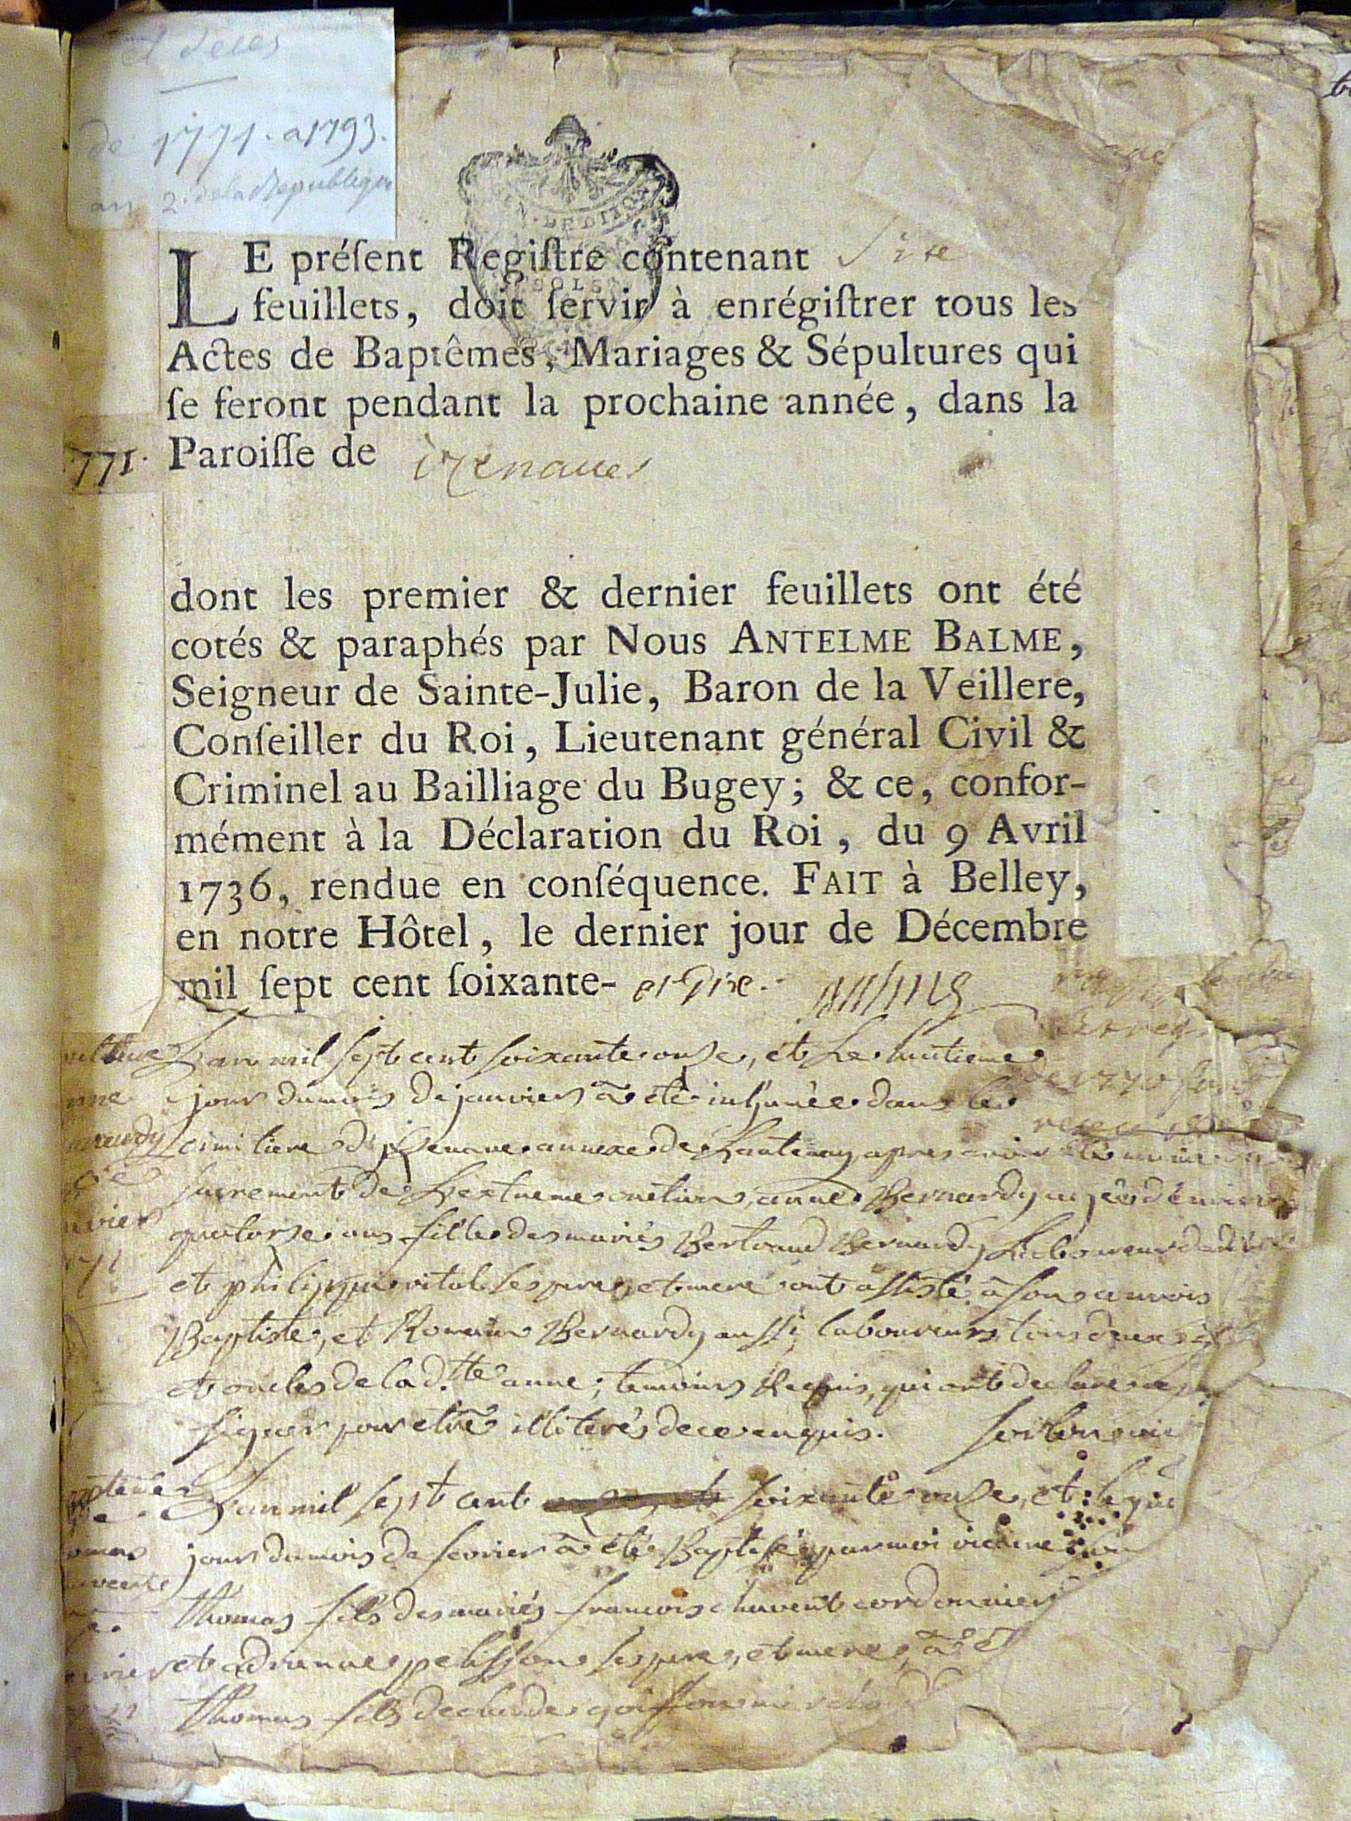 et deces
de 1771. a 1793.
an 2. de la Republique
LE préſent Regiſtre contenant
feuillets, doit ſervir à enrégiſtrer tous les
Actes de Baptêmes, Mariages & Sépultures qui
ſe feront pendant la prochaine année, dans la
771. Paroiſſe de izenaves
dont les premier & dernier feuillets ont été
cotés & paraphés par Nous ANTELME BALME,
Seigneur de Sainte-Julie, Baron de la Veillere,
Conſeiller du Roi, Lieutenant général Civil &
Criminel au Bailliage du Bugey; & ce, confor-
mément à la Déclaration du Roi, du 9 Avril
1736, rendue en conſéquence. FAIT à Belley,
en notre Hôtel, le dernier jour de Décembre
mil ſept cent ſoixante- et dix.
L'an mil sept cent soixante onze, et le huitieme
jour du mois de janvier à été inhumée dans le
cimitiere d'izenave annexe de Lantenay apres avoir
sacrement de L'extreme onction, anne Bernardy agée d'environ
quatorse ans fille des mariés Bertrand Bernardy Laboureur
et philippine vital ses pere, et mere ont assisté à son convois
Baptiste, et Romain Bernardy aussi laboureurs tous deux
et oncles de lad.tte anne; temoins Requis, qui ont declaré
signer pour etre illiterés de ce enquis.
L'an mil sept cent soixante onze, et le
jour du mois de fevrier à été Baptisé par moi vicaire
thomas fils des mariés francois chavent cordonnier
et adrienne pelisson ses pere, et mere, à
thomas fils de claude